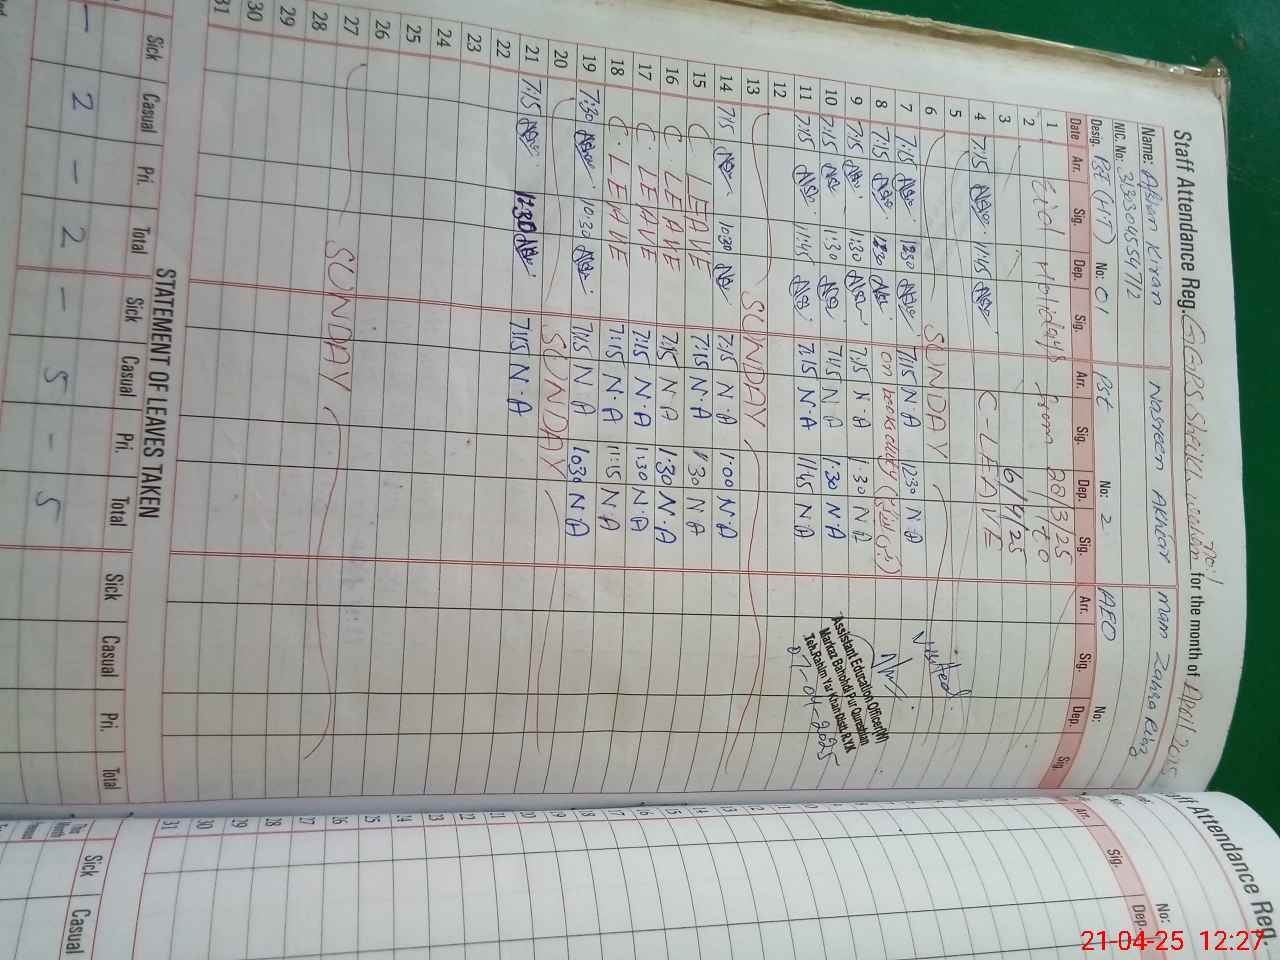 Staff Attendance Reg. GGPS Sheikh wahan for the month of April 2025
Name: Afshan Kiran Nasreen Akhtar Mam Zahra Riaz
NIC. No: 3130304554712
Desig. Pst (HT) No: 01 Pst No: 2 AEO No:
Date Arr. Sig. Dep. Sig. Arr. Sig. Dep. Sig. Arr. Sig. Dep. Sig.
1 Eid Holidays from 28/3/25 to
2 6/4/25
3
4 7:15 11:45 C-LEAVE
5
6 SUNDAY
7 7:15 12:30 7:15 N.A 12:30 N.A
8 7:15 12:30 on books duty
9 7:15 1:30 7:15 N.A 1:30 N.A
10 7:15 1:30 7:15 N.A 1:30 N.A
11 7:15 11:45 7:15 N.A 11:45 N.A
12
13 SUNDAY
14 7:15 10:30 7:15 N.A 1:00 N.A
15 C LEAVE 7:15 N.A 1:30 N.A
16 C. LEAVE 7:15 N.A 1:30 N.A
17 C. LEAVE 7:15 N.A 1:30 N.A
18 C. LEAVE 7:15 N.A 11:15 N.A
19 7:30 10:30 7:15 N.A 10:30 N.A
20 SUNDAY
21 7:15 12:30 7:15 N.A
22
23
24
25
26
27 SUNDAY
28
29
30
31
Visited.
Assistant Education Officer(W)
Markaz Bahohdi Pur Qureshian
Teh.Rahim Yar Khan Distt. R.Y.K
07-04-2025
STATEMENT OF LEAVES TAKEN
Sick Casual Pri. Total Sick Casual Pri. Total Sick Casual Pri. Total
- 2 - 2 - 5 - 5
Staff Attendance Reg.
No:
Arr. Sig. Dep.
Sick Casual
21-04-25 12:27